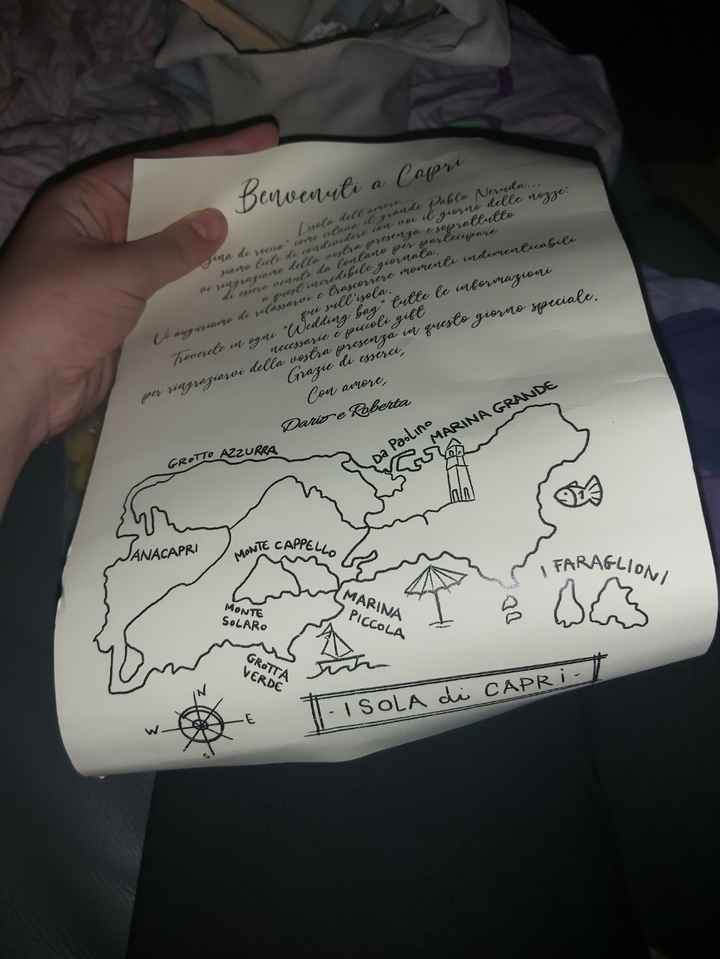 Benvenuti a Capri
L'isola dell'amore,
di roccia" come citava il grande Pablo Neruda...
siamo lieti di condividere con voi il giorno delle nozze:
vi ringraziamo della vostra presenza e soprattutto
di essere venuti da lontano per partecipare
a quest'incredibile giornata.
Vi auguriamo di rilassarvi e trascorrere momenti indimenticabili
qui sull'isola.
Troverete in ogni "Wedding bag" tutte le informazioni
necessarie e piccoli gift
per ringraziarvi della vostra presenza in questo giorno speciale.
Grazie di esserci,
Con amore,
Dario e Roberta
GROTTO AZZURRA
DA PAOLINO
MARINA GRANDE
ANACAPRI
MONTE CAPPELLO
I FARAGLIONI
MONTE
SOLARO
MARINA
PICCOLA
GROTTA
VERDE
N
W E
S
- ISOLA di CAPRI -